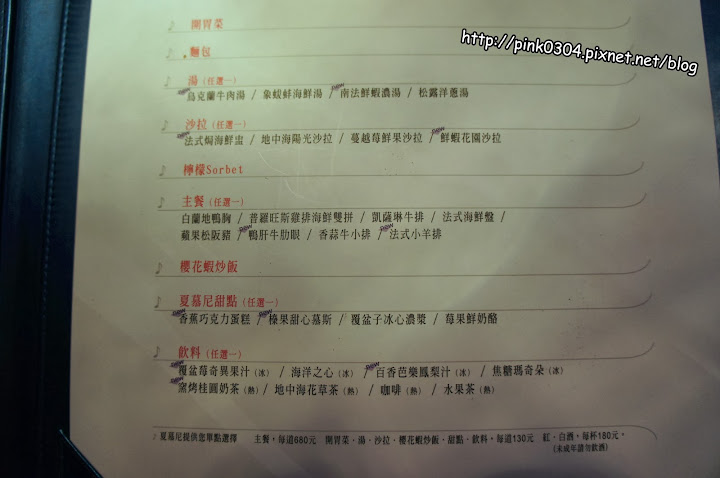 開胃菜
http://pink0304.pixnet.net/blog
麵包
湯（任選一）
烏克蘭牛肉湯 / 象蚊蚌海鮮湯 / 南法鮮蝦濃湯 / 松露洋蔥湯
沙拉（任選一）
法式焗海鮮盅 / 地中海陽光沙拉 / 蔓越莓鮮果沙拉 / 鮮蝦花園沙拉
檸檬Sorbet
主餐（任選一）
白蘭地鴨胸 / 普羅旺斯雞排海鮮雙拼 / 凱薩琳牛排 / 法式海鮮盤 /
蘋果松阪豬 / 鴨肝牛肋眼 / 香蒜牛小排 / 法式小羊排
櫻花蝦炒飯
夏慕尼甜點（任選一）
香蕉巧克力蛋糕 / 榛果甜心慕斯 / 覆盆子冰心濃漿 / 莓果鮮奶酪
飲料（任選一）
覆盆莓奇異果汁（冰） / 海洋之心（冰） / 百香芭樂鳳梨汁（冰） / 焦糖瑪奇朵（冰）
窯烤桂圓奶茶（熱） / 地中海花草茶（熱） / 咖啡（熱） / 水果茶（熱）
夏慕尼提供您單點選擇 主餐，每道680元 開胃菜．湯．沙拉．櫻花蝦炒飯．甜點．飲料，每道130元 紅．白酒，每杯180元。
（未成年請勿飲酒）